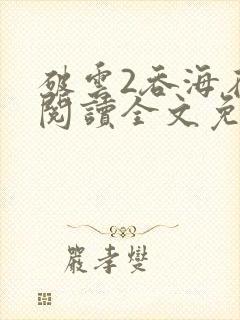 破雲2吞海
閱讀全文免
嚴孝燮